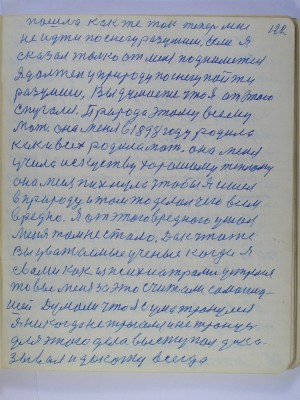 пошло как же так теперь мне 122
не идти по снегу разутим, если я
сказал только от меня поднимется
я должен природу по снегу пойти
разутим, Вы думаете что я от этого
Природа этому всему
мать. она меня в 1898 году родила
как и всех родила мать. она меня
учила искуству хорошему теплому
она меня пихнула чтобы я шел
в природу и там то делал чего всем
вредно. Я от этого вредного ушел
меня там не стало, Так что же
Вы уважаемые ученые когда я
с вами как
то вы меня за это считали
шей Думали что я с ума тронулся
Я никогда не трогался и не тронусь
для этого дела выступал дока
зывал и докажу всегда